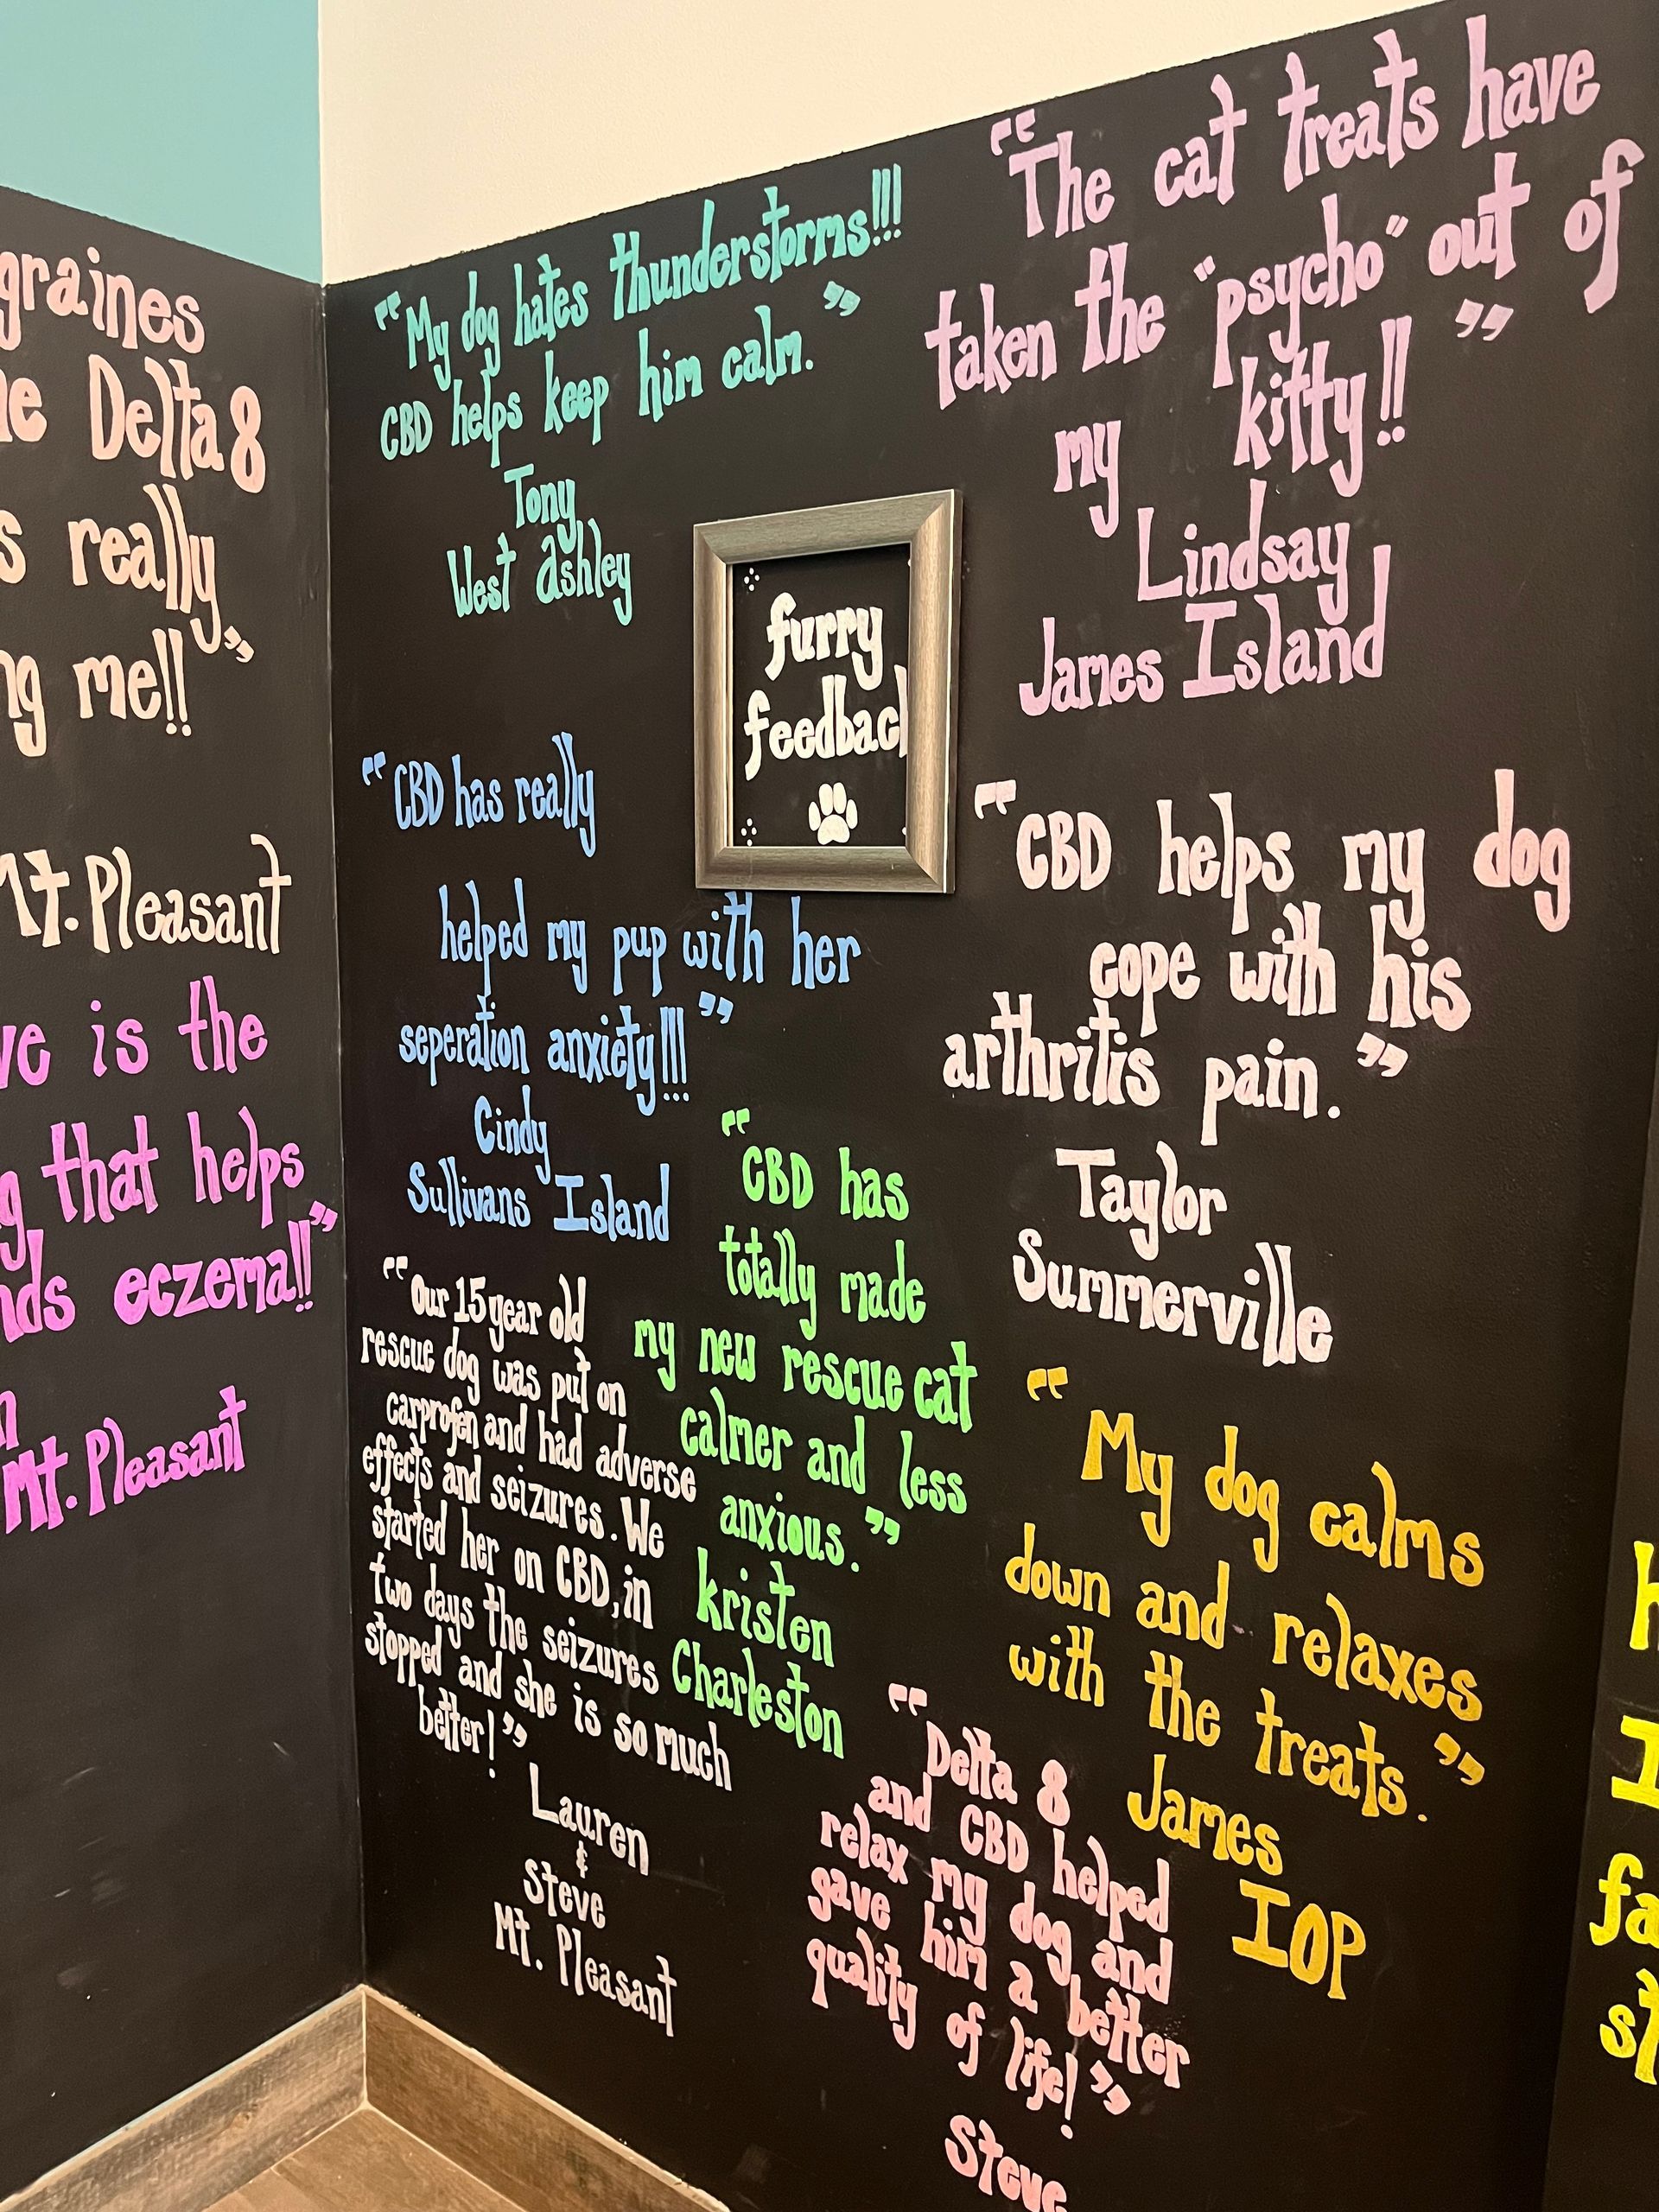 graines
Delta 8
really
me!!"
Mt. Pleasant
is the
that helps
eczema!!"
Mt. Pleasant
"My dog hates thunderstorms!!!
CBD helps keep him calm."
Tony
West Ashley
"The cat treats have
taken the "psycho" out of
my kitty!!"
Lindsay
James Island
furry
feedback
"CBD has really
helped my pup with her
seperation anxiety!!!"
Cindy
Sullivans Island
"CBD helps my dog
cope with his
arthritis pain."
Taylor
Summerville
"CBD has
totally made
my new rescue cat
calmer and less
anxious."
Kristen
Charleston
"Our 15 year old
rescue dog was put on
carprofen and had adverse
effects and seizures. We
started her on CBD, in
two days the seizures
stopped and she is so much
better!"
Lauren
&
Steve
Mt. Pleasant
"My dog calms
down and relaxes
with the treats."
James
IOP
"Delta 8
and CBD helped
relax my dog and
gave him a better
quality of life!"
Steve